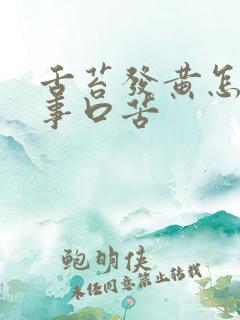 舌苔發黃怎
事口苦
鲍明侠
未经同意禁止转载